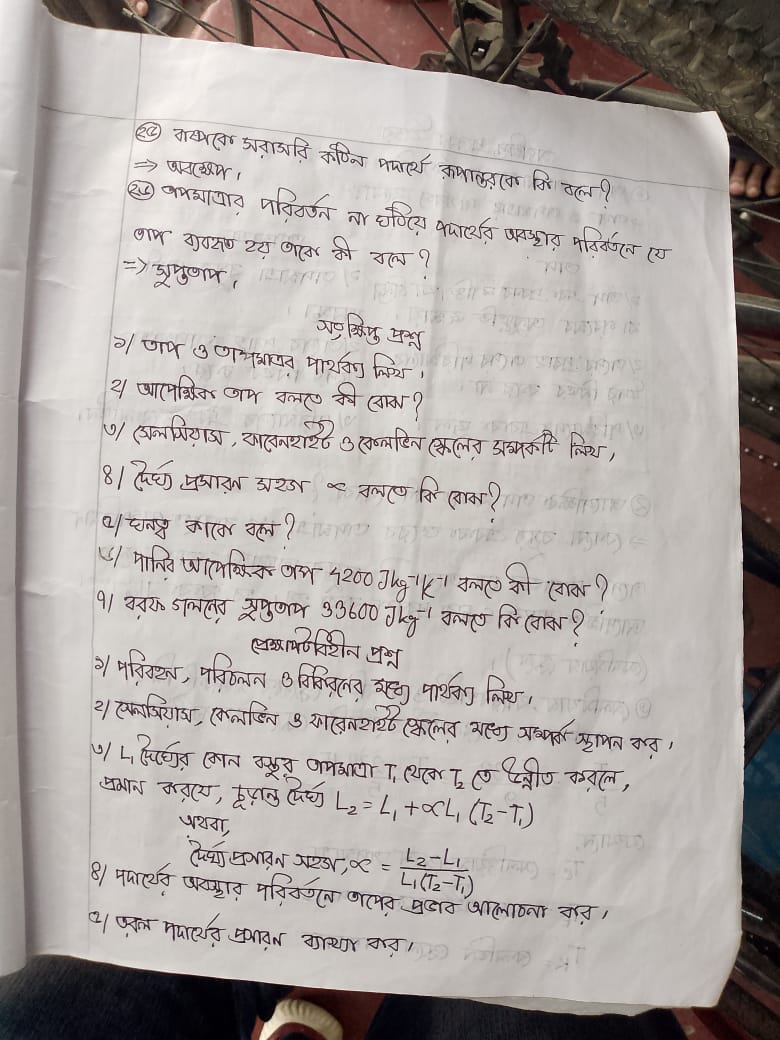 ২৫ বাষ্পকে সরাসরি কঠিন পদার্থে রূপান্তরকে কি বলে?
⇒ অবক্ষেপ।
২৬ তাপমাত্রার পরিবর্তন না ঘটিয়ে পদার্থের অবস্থার পরিবর্তনে যে
তাপ ব্যবহৃত হয় তাকে কী বলে?
⇒ সুপ্ততাপ।
সংক্ষিপ্ত প্রশ্ন
১/ তাপ ও তাপমাত্রার পার্থক্য লিখ।
২/ আপেক্ষিক তাপ বলতে কী বোঝ?
৩/ সেলসিয়াস, ফারেনহাইট ও কেলভিন স্কেলের সম্পর্কটি লিখ,
৪/ দৈর্ঘ্য প্রসারন সহগ ∝ বলতে কি বোঝ?
৫/ ঘনত্ব কাকে বলে?
৬/ পানির আপেক্ষিক তাপ 4200 Jkg⁻¹K⁻¹ বলতে কী বোঝ?
৭/ বরফ গলনের সুপ্ততাপ 33600 Jkg⁻¹ বলতে কি বোঝ?
প্রেক্ষাপটবিহীন প্রশ্ন
১/ পরিবহন, পরিচলন ও বিকিরনের মধ্যে পার্থক্য লিখ।
২/ সেলসিয়াস, কেলভিন ও ফারেনহাইট স্কেলের মধ্যে সম্পর্ক স্থাপন কর।
৩/ L₁ দৈর্ঘ্যের কোন বস্তুর তাপমাত্রা T₁ থেকে T₂ তে উন্নীত করলে,
প্রমান করযে, চূড়ান্ত দৈর্ঘ্য L₂ = L₁ + ∝L₁ (T₂-T₁)
অথবা,
দৈর্ঘ্য প্রসারন সহগ, ∝ = (L₂-L₁)/(L₁(T₂-T₁))
৪/ পদার্থের অবস্থার পরিবর্তনে তাপের প্রভাব আলোচনা কর।
৫/ তরল পদার্থের প্রসারন ব্যাখ্যা কর।